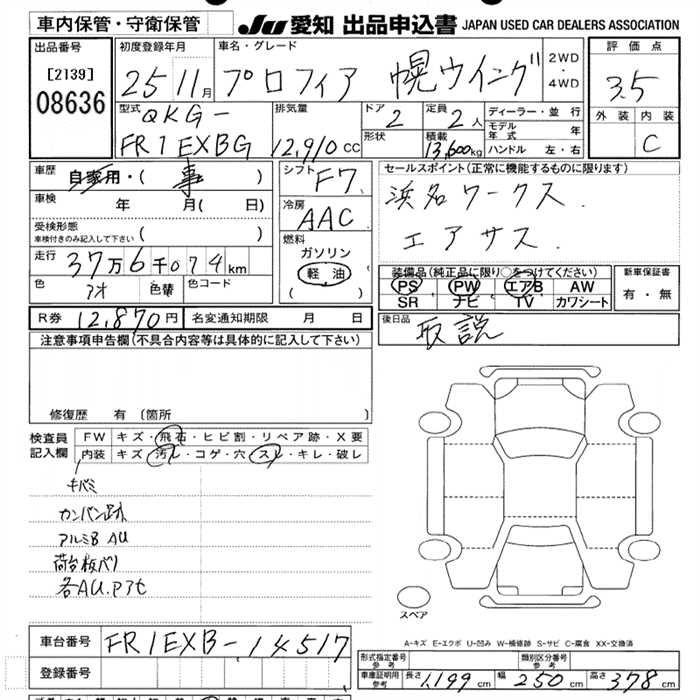 車内保管・守衛保管
JU 愛知 出品申込書 JAPAN USED CAR DEALERS ASSOCIATION
出品番号
[2139]
08636
初度登録年月
25 11月
車名・グレード
プロフィア 幌ウイング
2WD
・
4WD
評価点
3.5
外装 内装
C
型式
QKG-
FR1EXBG
排気量
12,910 CC
ドア
2
形状
定員
2 人
積載
13,600kg
ディーラー・並行
モデル年式 年
ハンドル 左・右
車歴
自家用・( 事 )
車検
年 月( 日)
受検形態
車検付きのみ記入して下さい ( )
走行
37万6千074km
色
アオ
色替
色コード
シフト
F7
冷房
AAC
燃料
ガソリン
軽油
( )
セールスポイント(正常に機能するものに限ります)
浜名ワークス.
エアサス.
装備品(純正品に限り○をつけてください)
PS PW エアB AW
SR ナビ TV カワシート
新車保証書
有・無
R券 12,870円 名変通知期限 月 日
後日品
取説
注意事項申告欄(不具合内容等は具体的に記入して下さい)
修復歴 有 (箇所
検査員
記入欄
FW キズ・飛石・ヒビ割・リペア跡・X要
内装 キズ・汚レ・コゲ・穴・スレ・キレ・破レ
キバミ
カンバン跡
アルミB AU
荷台板バリ
各AU.Pアセ
スペア
A-キズ E-エクボ U-凹み W-補修跡 S-サビ C-腐食 XX-交換済
車台番号 FR1EXB-14517
登録番号
形式指定番号
参考
類別区分番号
参考
車庫証明用
参考
長さ 1,199 cm 幅 250 cm 高さ 378 cm